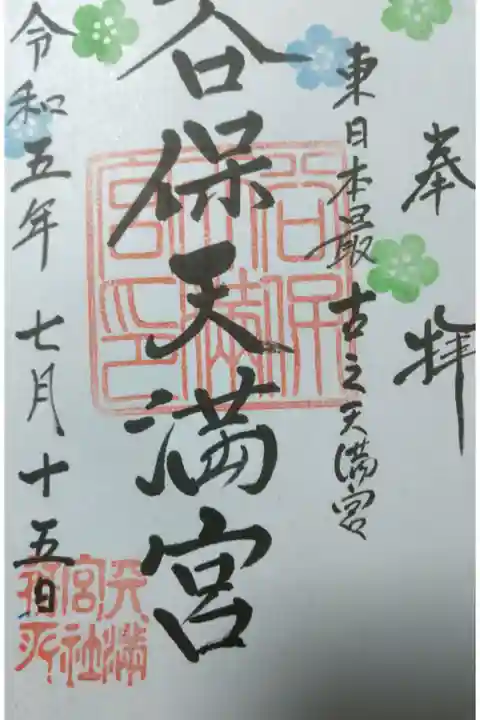 奉拝
東日本最古之天満宮
谷保天満宮
令和五年七月十五日
谷保
天満
宮印
天満
宮社
務所